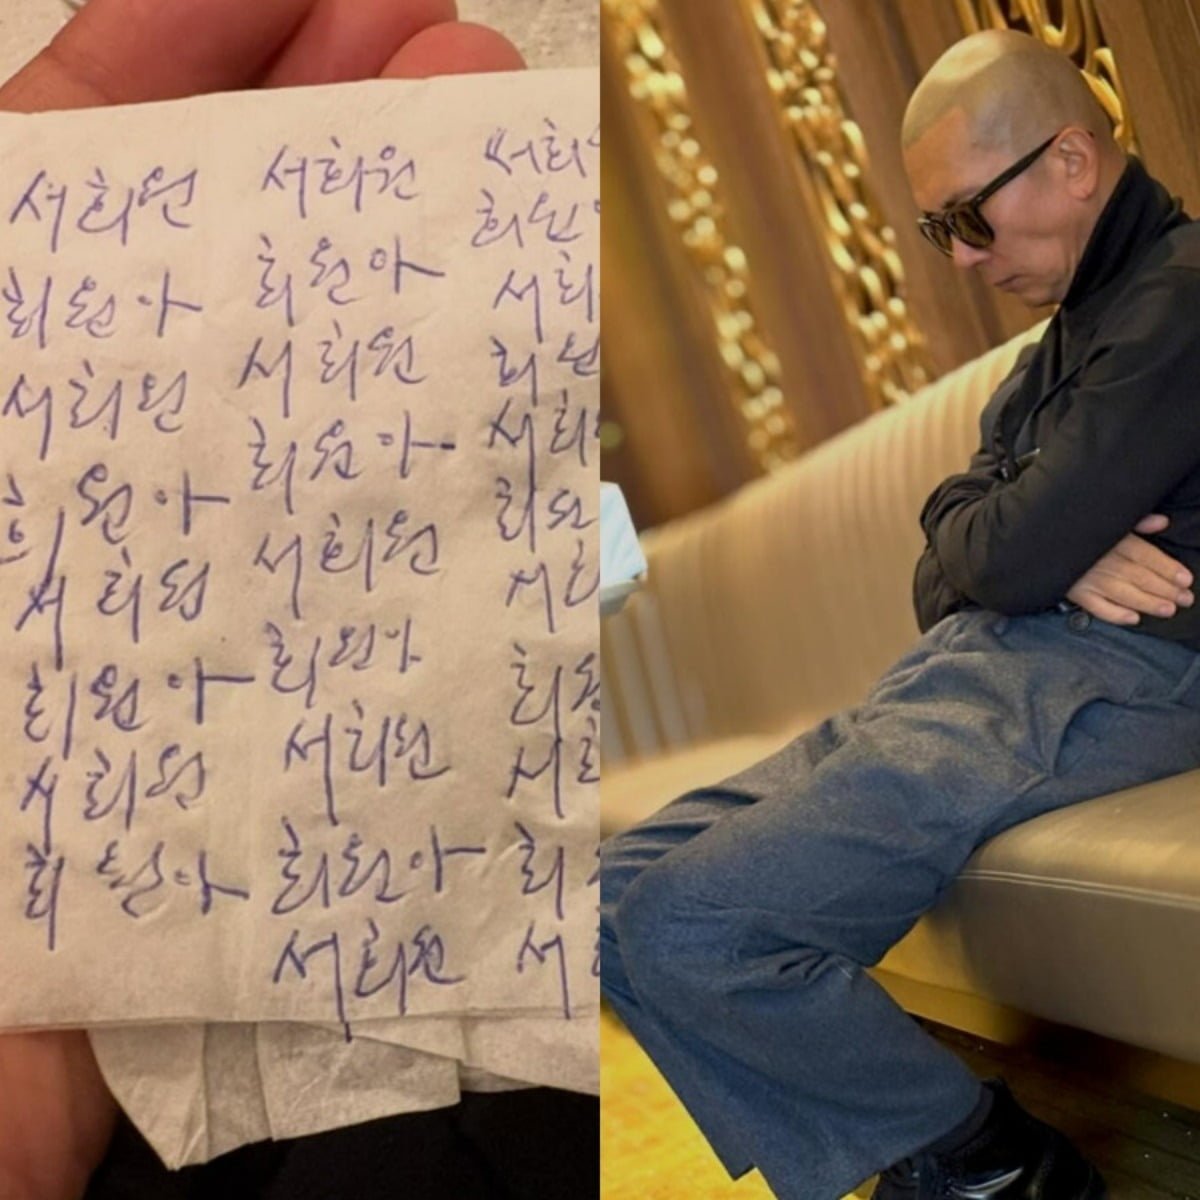 서희원
희원아
서희원
희원아
서희원
희원아
서희원
희원아
서희원
희원아
서희원
희원아
서희원
희원아
서희원
희원아
서희원
서희
희원
서희
희원
서희
희원
서희
희원
서희
희
서